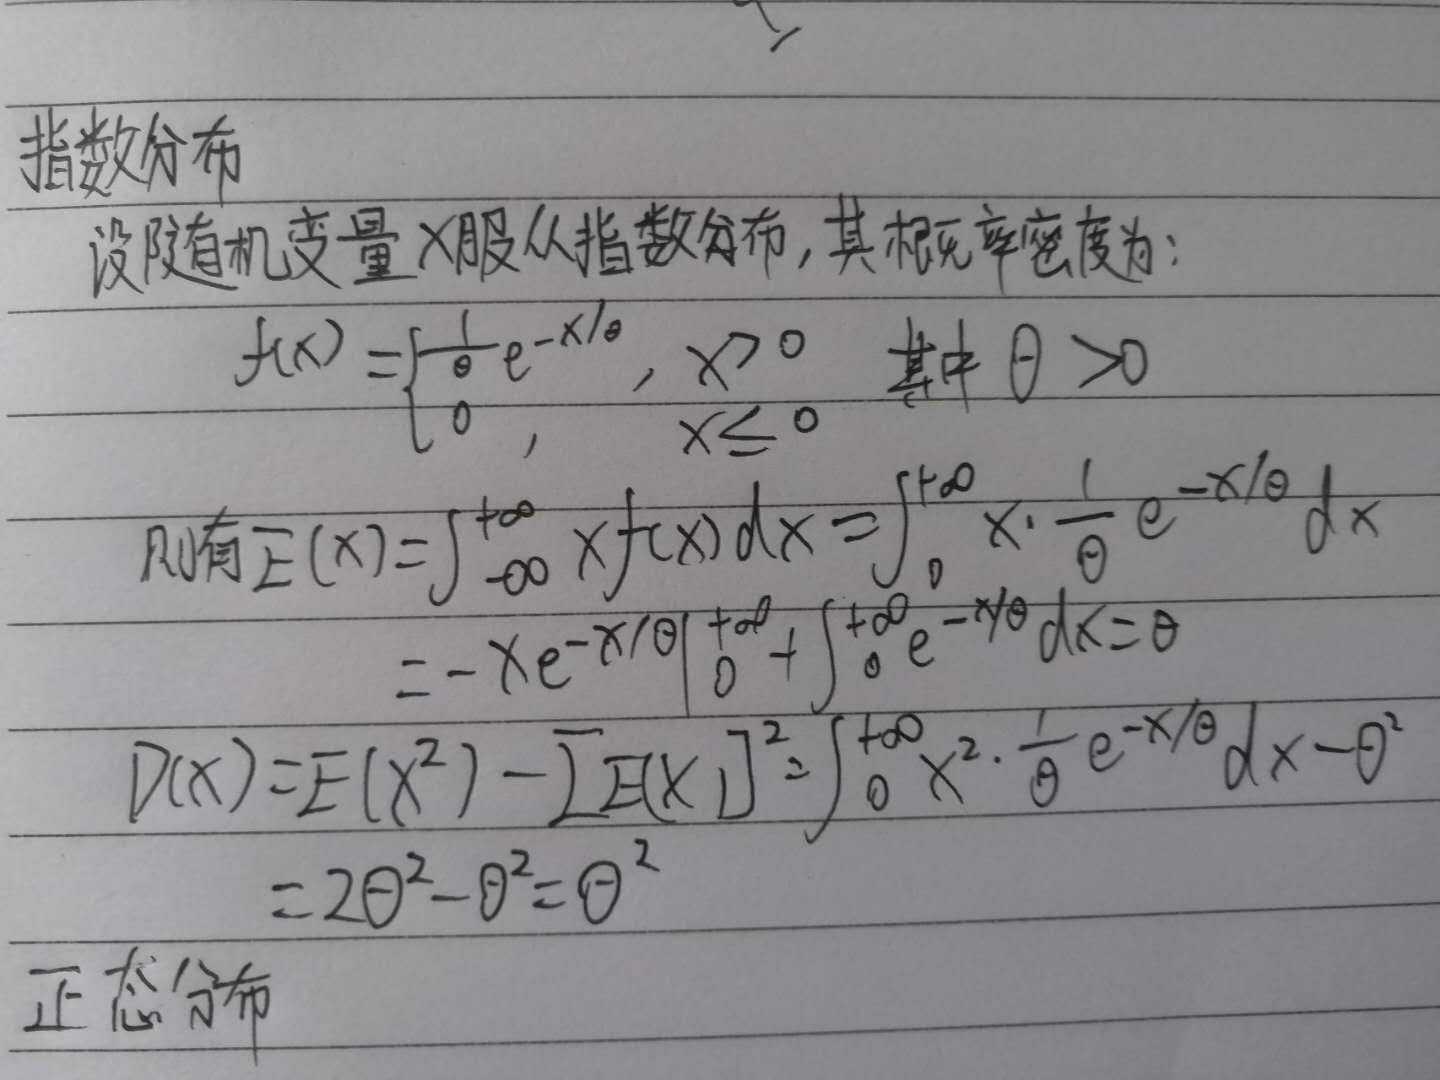 指数分布
设随机变量X服从指数分布,其概率密度为:
f(x) = { 1/θ e^{-x/θ}, x>0 其中 θ >0
0, x≤0
则有E(X)=∫_{-∞}^{+∞} xf(x)dx=∫_0^{+∞} x·1/θ e^{-x/θ}dx
=-xe^{-x/θ}|_0^{+∞}+∫_0^{+∞}e^{-x/θ}dx=θ
D(X)=E(X²)-[E(X)]²=∫_0^{+∞}x²·1/θ e^{-x/θ}dx-θ²
=2θ²-θ²=θ²
正态分布